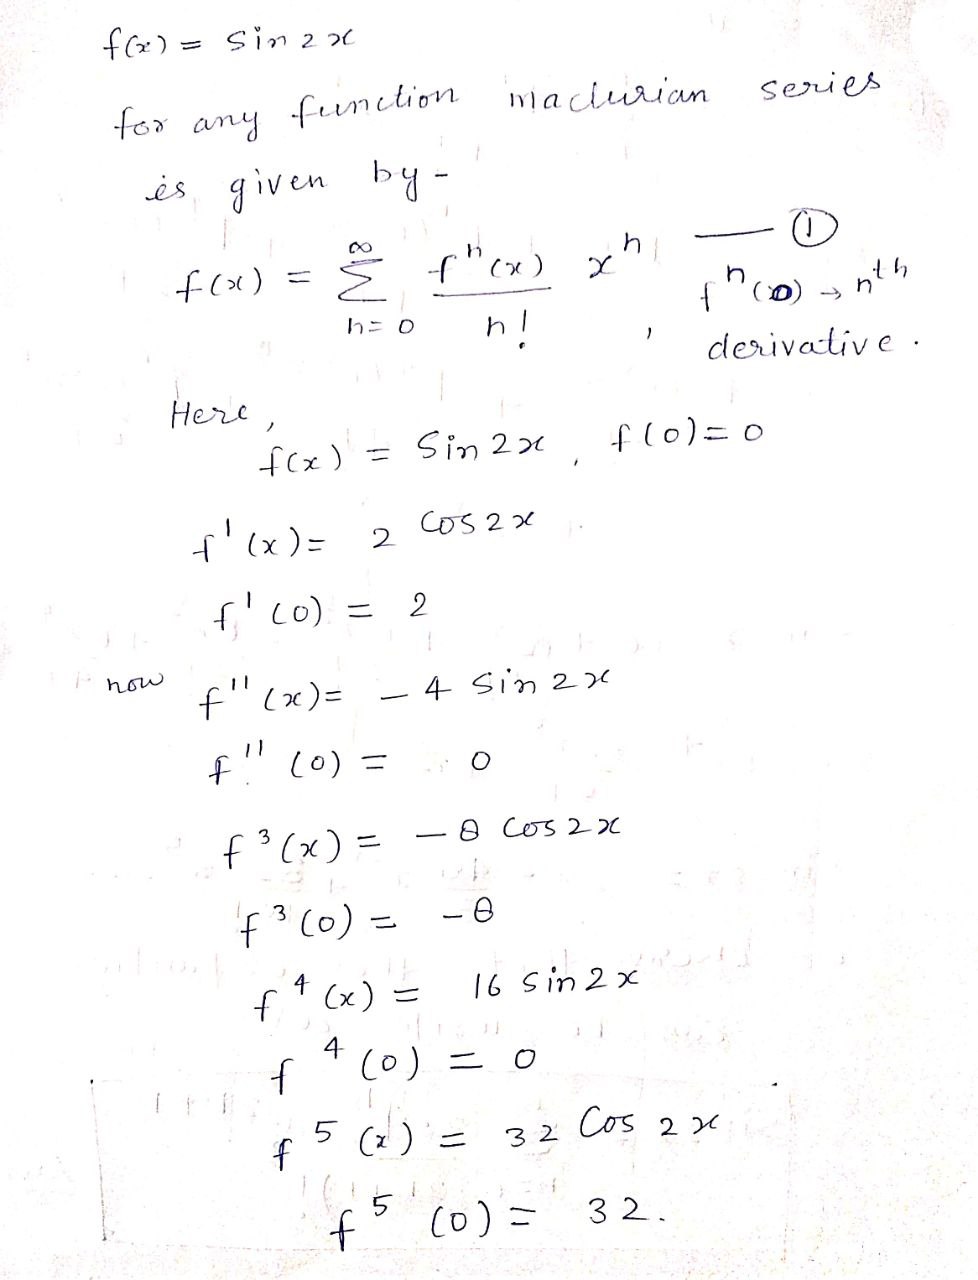 f(x) = Sin 2x
for any function maclurian series
is given by -
f(x) = ∞ Σ n=0 fⁿ(x) / n! xⁿ — ①
, fⁿ(0) → nth
derivative.
Here,
f(x) = Sin 2x , f(0) = 0
f'(x) = 2 Cos 2x
f'(0) = 2
now f''(x) = - 4 Sin 2x
f''(0) = 0
f³(x) = - 8 Cos 2x
f³(0) = - 8
f⁴(x) = 16 Sin 2x
f⁴(0) = 0
f⁵(x) = 32 Cos 2x
f⁵(0) = 32.